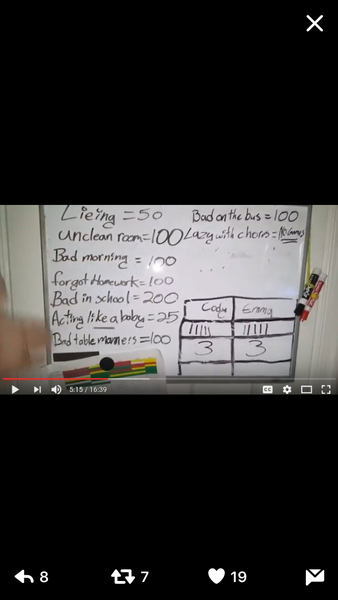 Lieing = 50
Bad on the bus = 100
unclean room = 100
Lazy with chores = No Games
Bad morning = 100
forgot Homework = 100
Bad in school = 200
Acting like a baby = 25
Bad table manners = 100
Cody Emma
3 3
5:15 / 16:39
CC
8 7 19